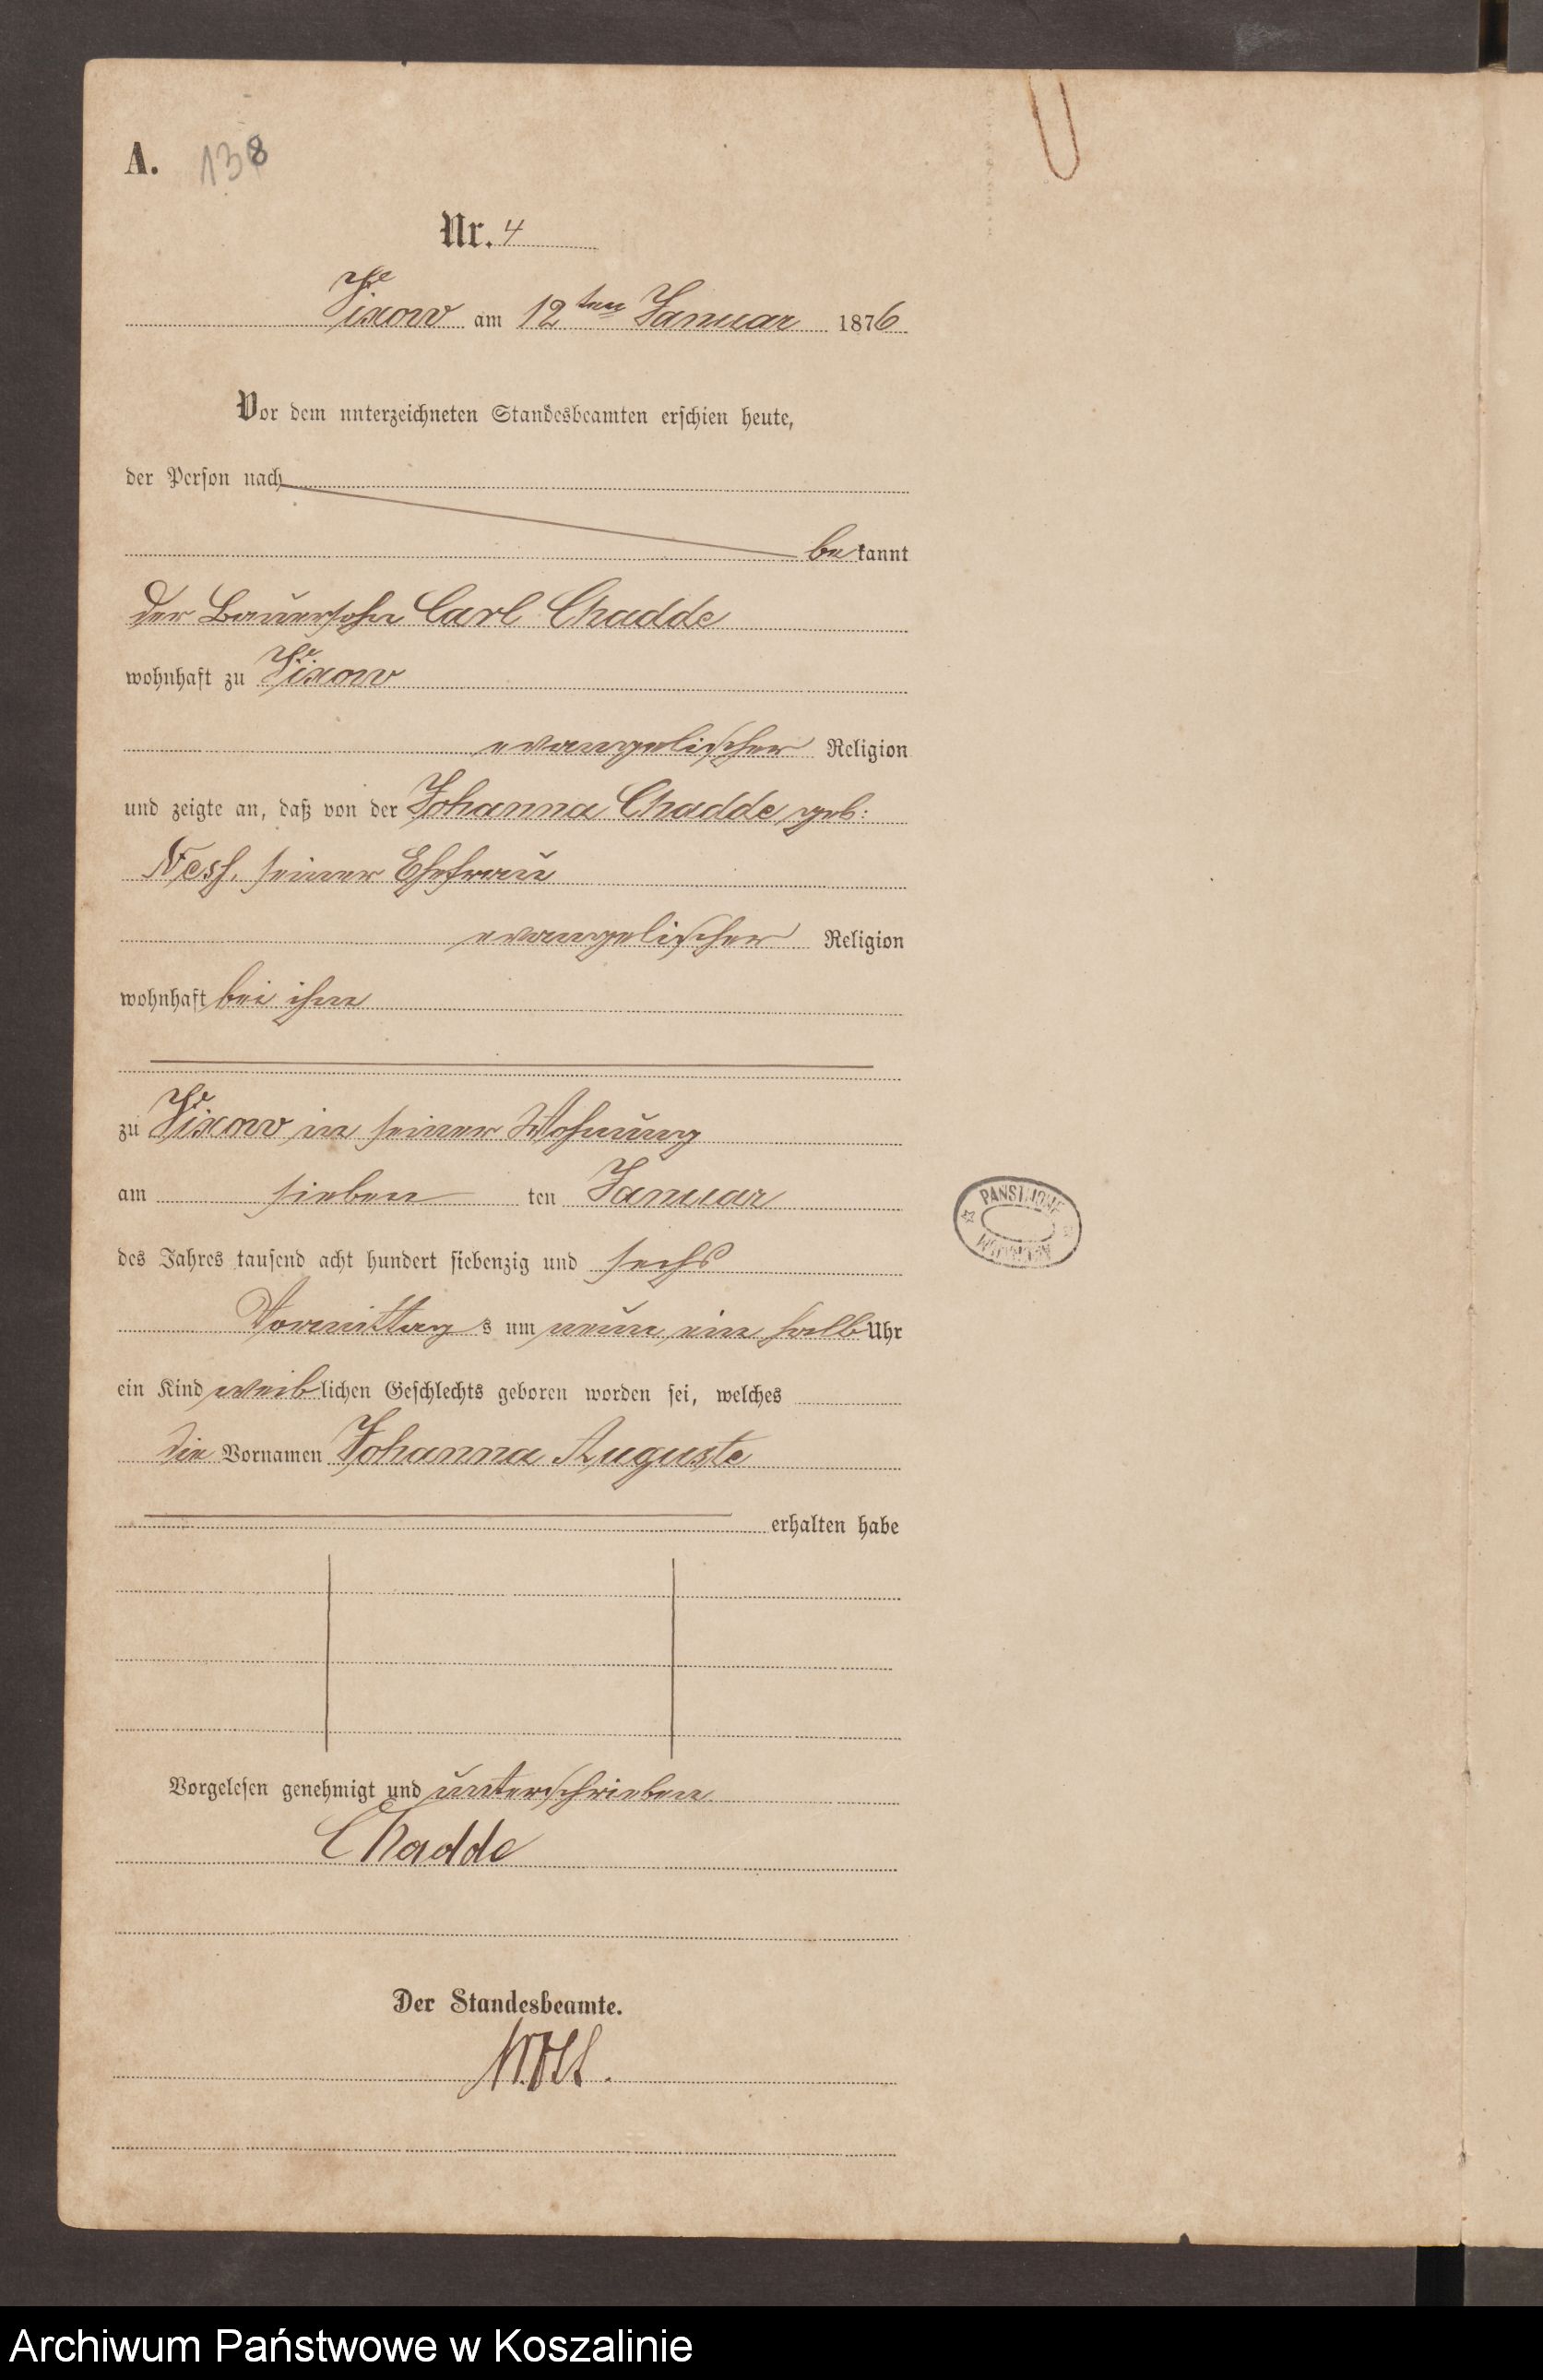 A. 138
Nr. 4
Vixow am 12ten Januar 1876
Vor dem unterzeichneten Standesbeamten erschien heute,
der Person nach
bekannt
der Bauersohn Carl Chadde
wohnhaft zu Vixow
evangelischer Religion
und zeigte an, daß von der Johanna Chadde geb:
seiner Ehefrau
evangelischer Religion
wohnhaft bei ihm
zu Vixow in seiner Wohnung
am sieben ten Januar
des Jahres tausend acht hundert siebenzig und sechs
Vormittags um neun ein halb Uhr
ein Kind weiblichen Geschlechts geboren worden sei, welches
die Vornamen Johanna Auguste
erhalten habe
Vorgelesen genehmigt und unterschrieben
Chadde
Der Standesbeamte.
Archiwum Państwowe w Koszalinie